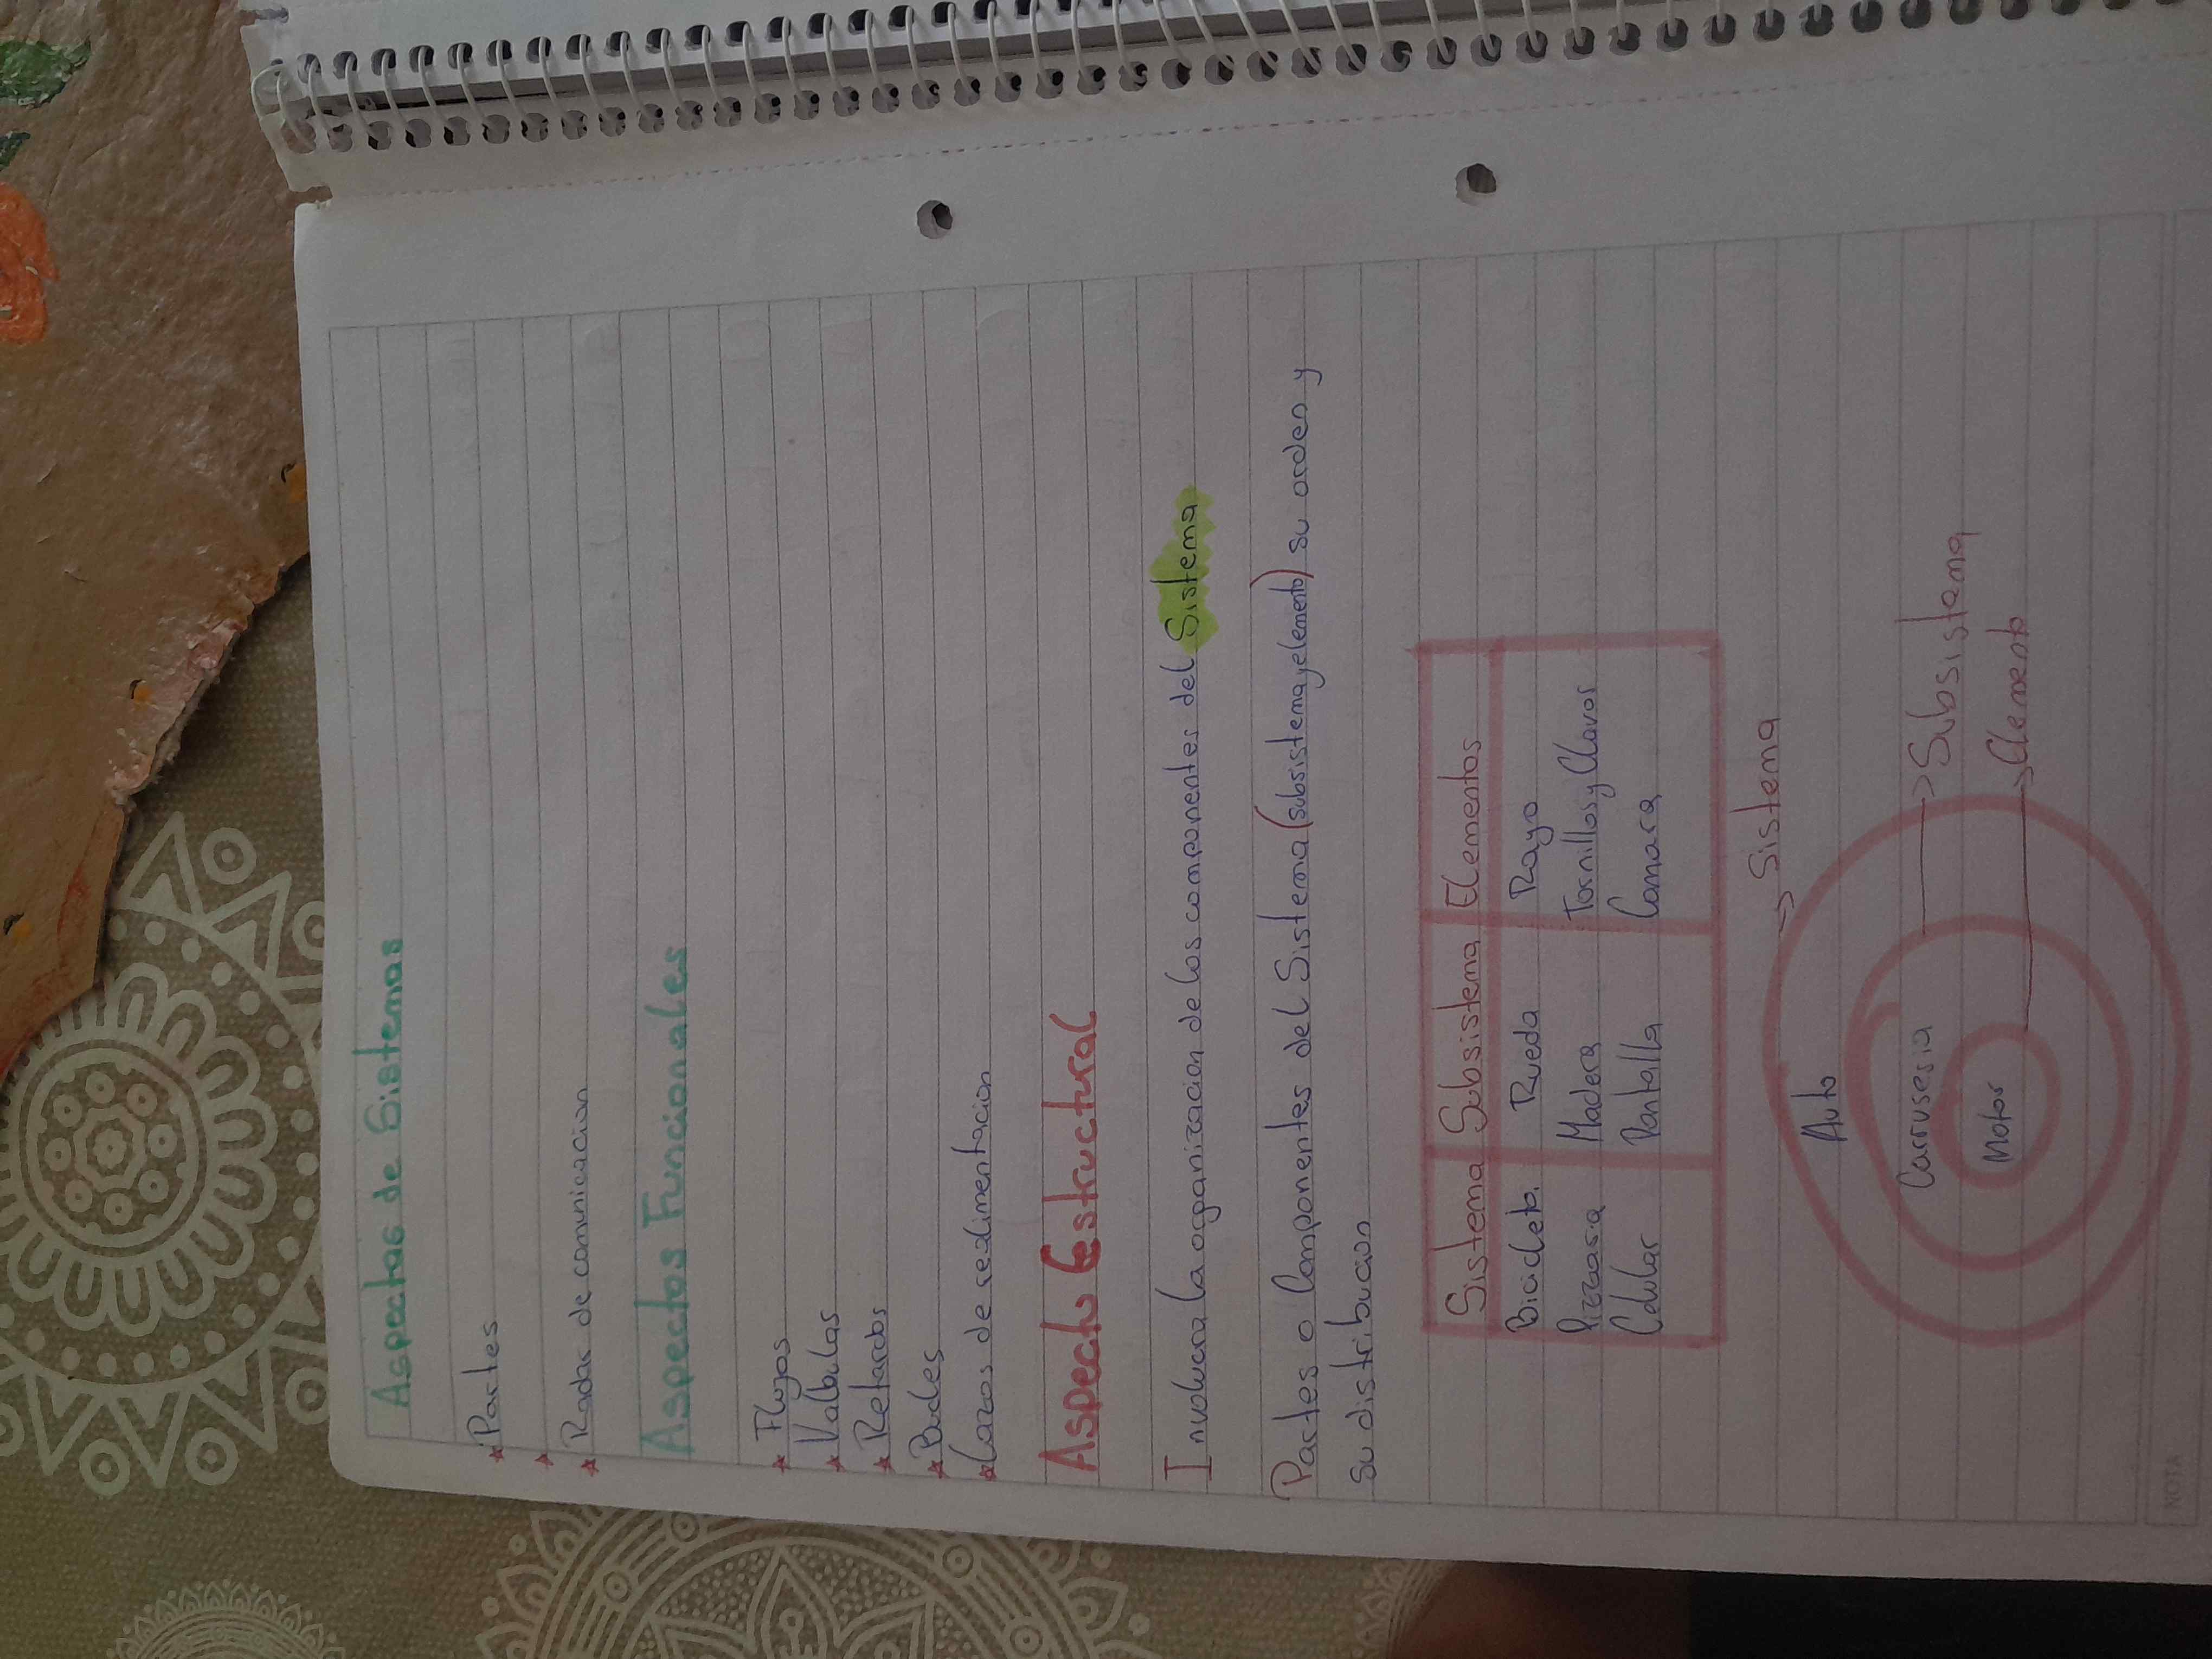 Aspectos de Sistemas
Partes
Radar de comunicacion
Aspectos Funcionales
Flujos
Valbulas
Retardos
Bucles
Lazos de realimentacion
Aspecto Estructural
Involucra la organizacion de los componentes del Sistema
Partes o Componentes del Sistema (subsistema y elemento) su orden y
su distribucion
Sistema Subsistema Elementos
Bicicleta. Rueda Rayo
Pizzaria Madera Tornillos y Clavos
Celular Pantalla Camara
Sistema
Auto
Carruseria Subsistema
Motor Elemento
NOTA